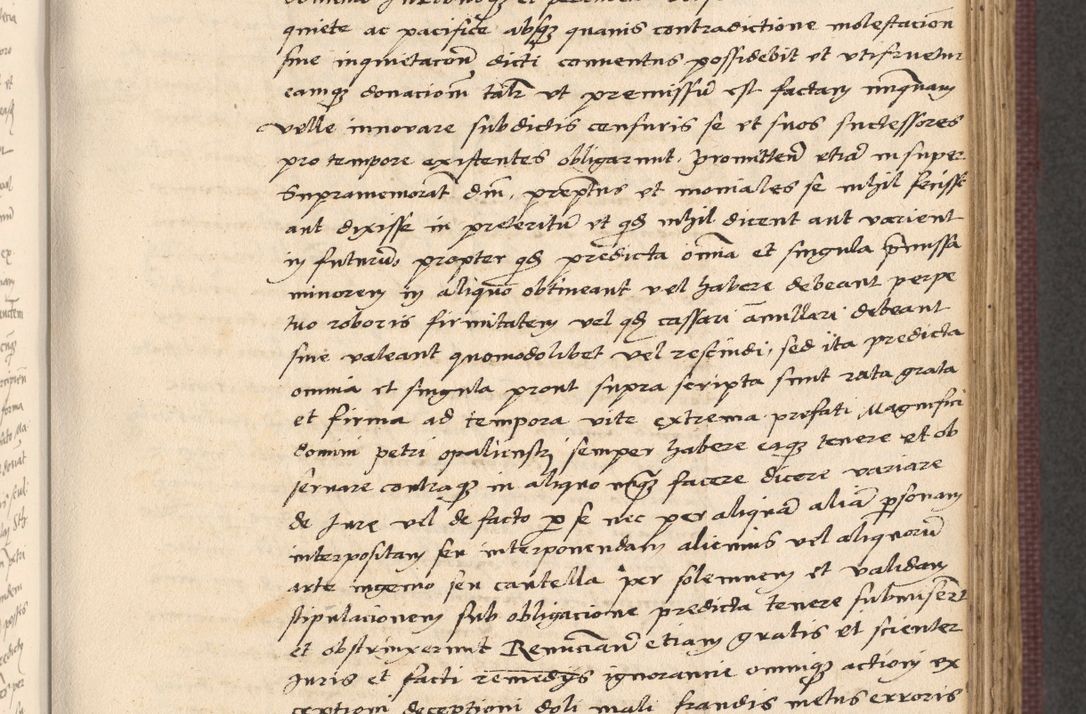 quiete ac pacifice absq quauis contradictione molestacion
siue inquietacoē dicti conuentus possidebit et vtifruetur
eamq donacioni talr vt premissū est factam nunquam
velle innouare subdictis censuris se et suos successores
pro tempore existentes obligarunt. Promitteñ etiā insuper
Supramemorat dñi, preptus et moniales se nihil fecisse
aut dixisse in preteritū et qd nihil dicent aut varient
in futurum, propter qd predicta oīna et singula p̄missa
minorem in aliquo obtineant vel habere debeant perpe
tuo roboris firmitatem vel qd cassari anullari debeant
siue valeant quomodolibet vel rescindi, sed ita predicta
omnia et singula prout supra scripta sunt rata grata
et firma ad tempora vite extrema prefati Magnifici
domini petri opalienskj semper habere eaq tenere et ob
seruare contraq in aliquo nūq facere dicere variare
de Jure vel de facto p se nec per aliquā aliam psonam
interpositam seu interponendam alicuius vel aliquorū
arte ingenio seu cautella per solemnem et validam
stipulacionem sub obligacione predicta tenere submiserūt
et obstrinxerunt Renuncianī etiam gratis et scienter
Juris et facti remedys ignorancie omniq actioni ex
ceptioni deceptioni doli mali fraudis metus erroris